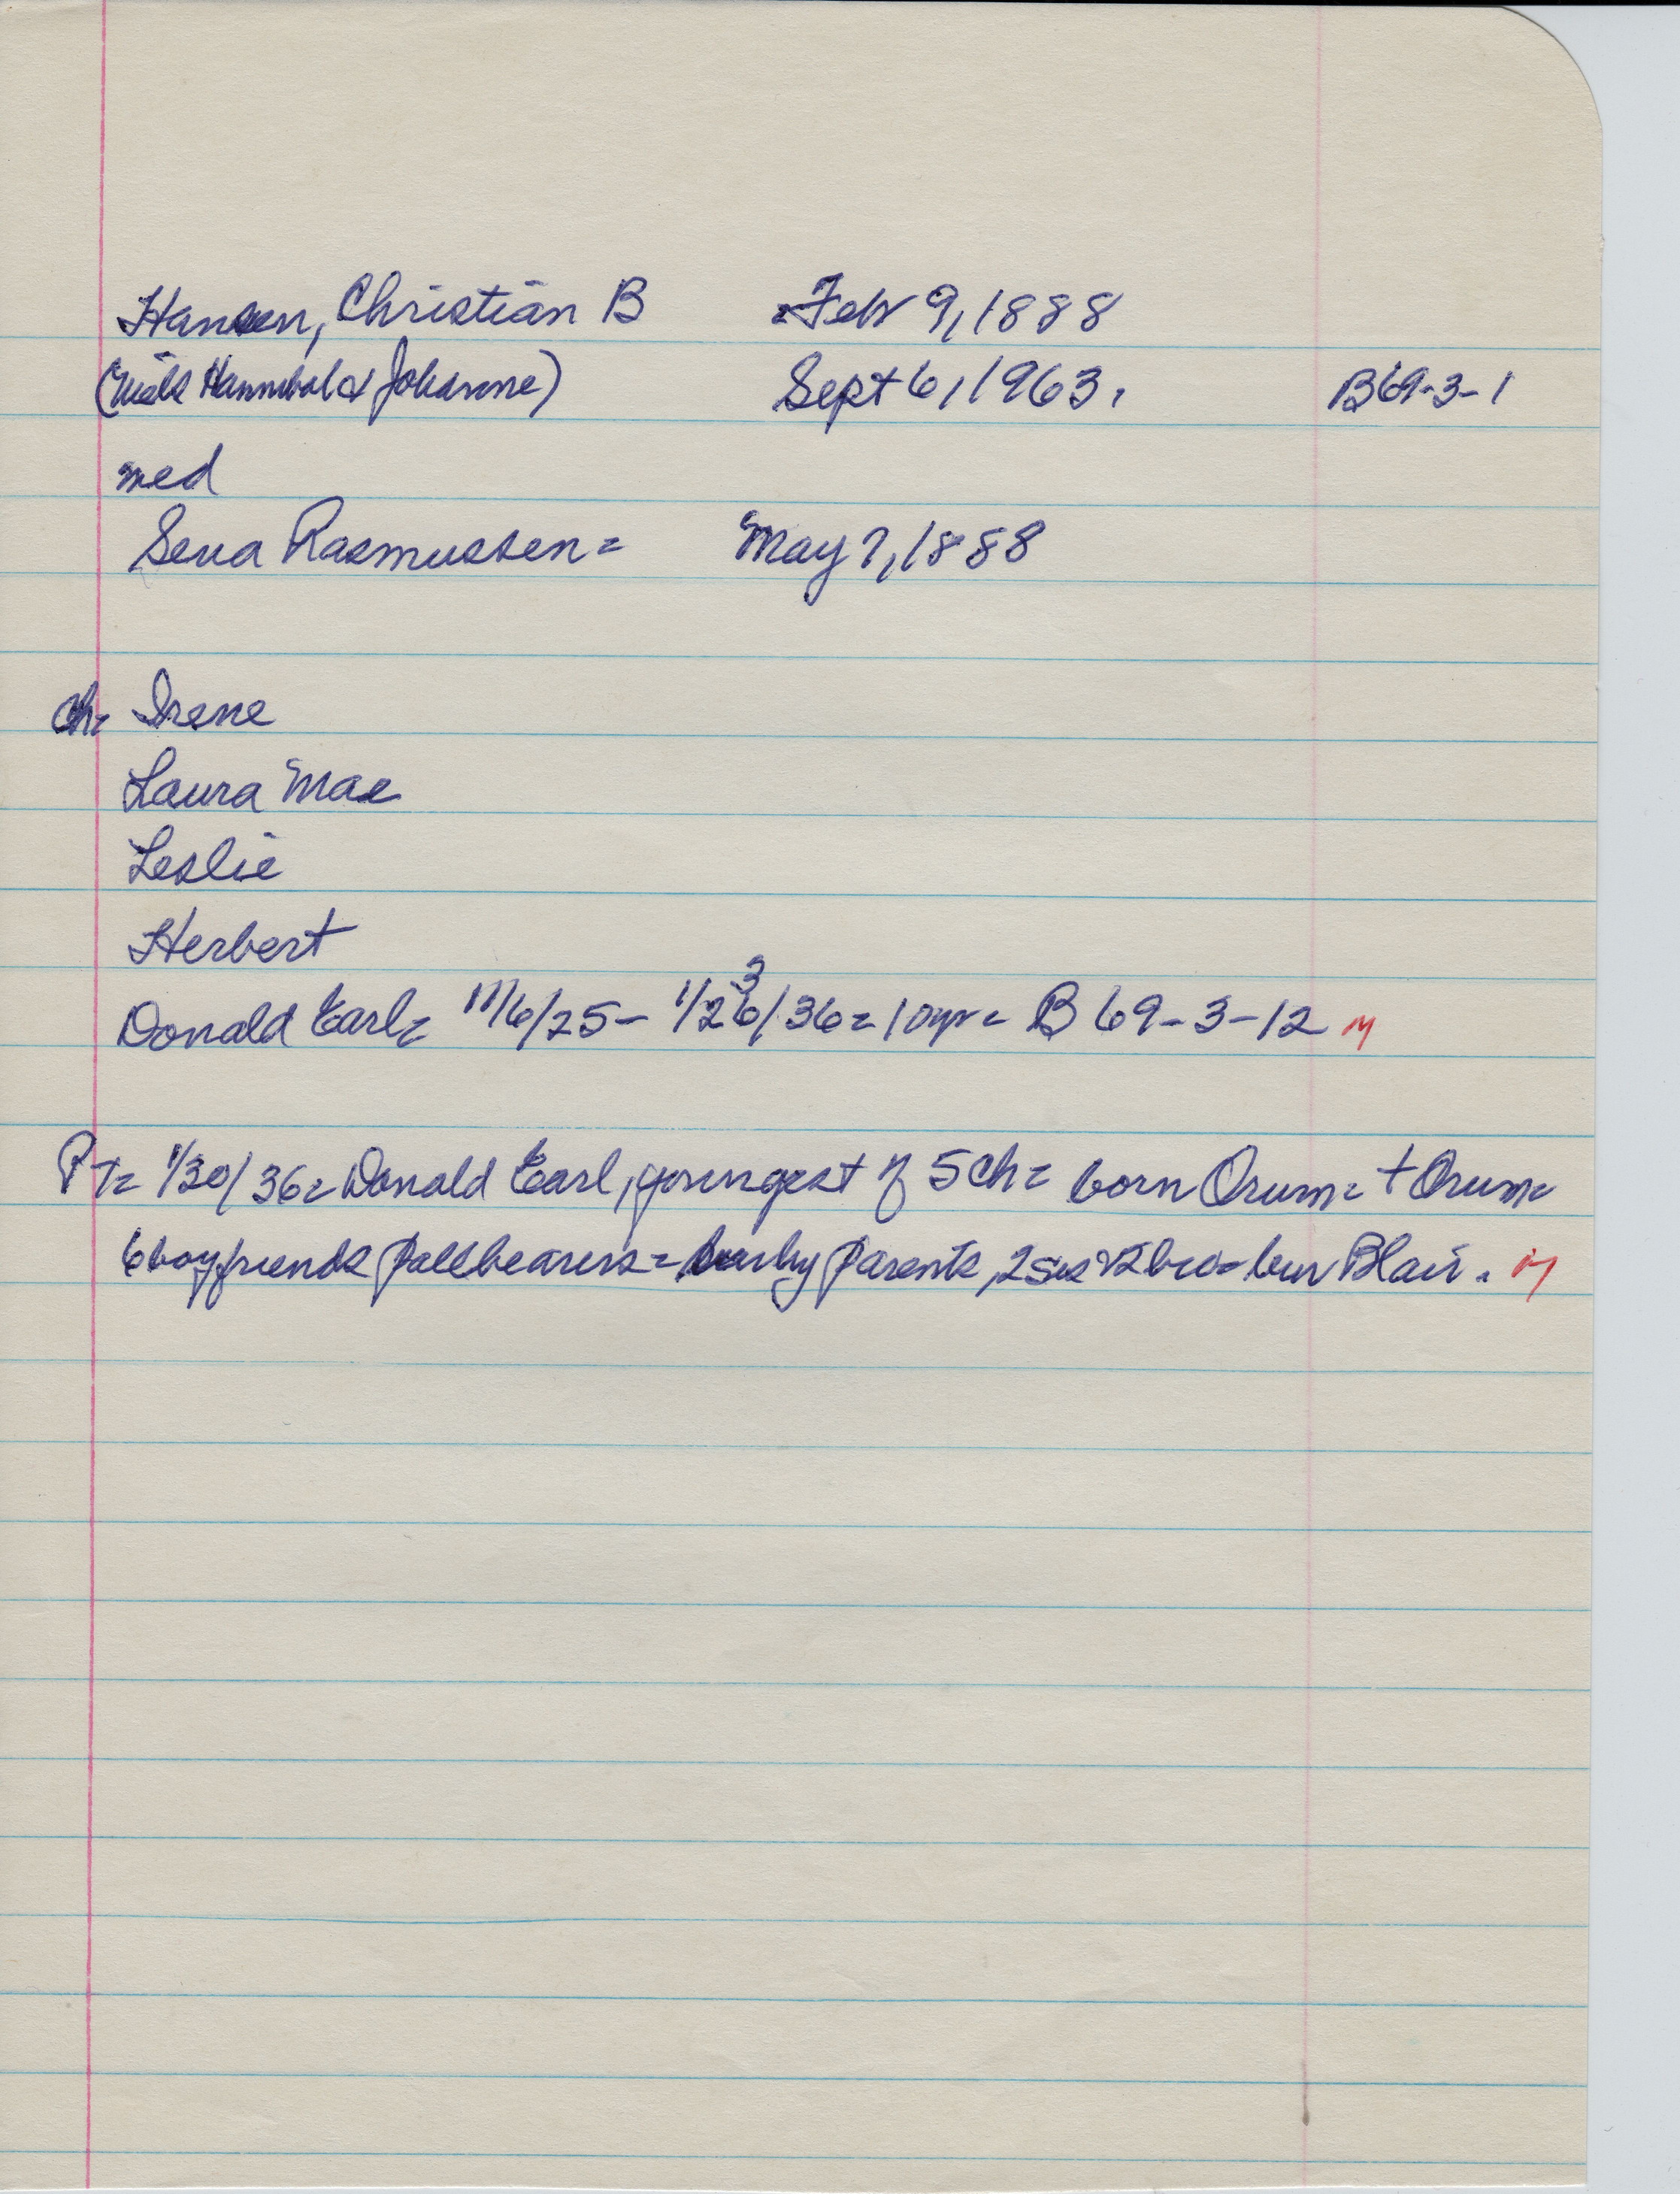 Hansen, Christian B Feb 9, 1888
(Niels Hannibal & Johanne) Sept 6, 1963. B69-3-1
med
Sena Rasmussen = May 7, 1888
ch= Irene
Laura Mae
Leslie
Herbert
3
Donald Earl= 11/6/25- 1/26/36= 10yr= B 69-3-12 M
PT= 1/30/36= Donald Earl, youngest of 5 ch= born Orum= + Orum=
6 boy friends pallbearers= by parents, 2 sis 2 bro= bur Blair. M